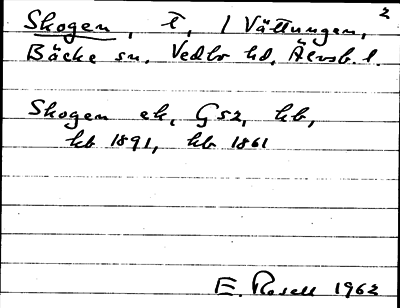 2
Skogen, t, / Vättungen,
Bäcke sn, Vedbo hd, Älvsb. l.
Skogen ek, G52, hb,
hb 1891, hb 1861
E. Rosell 1962